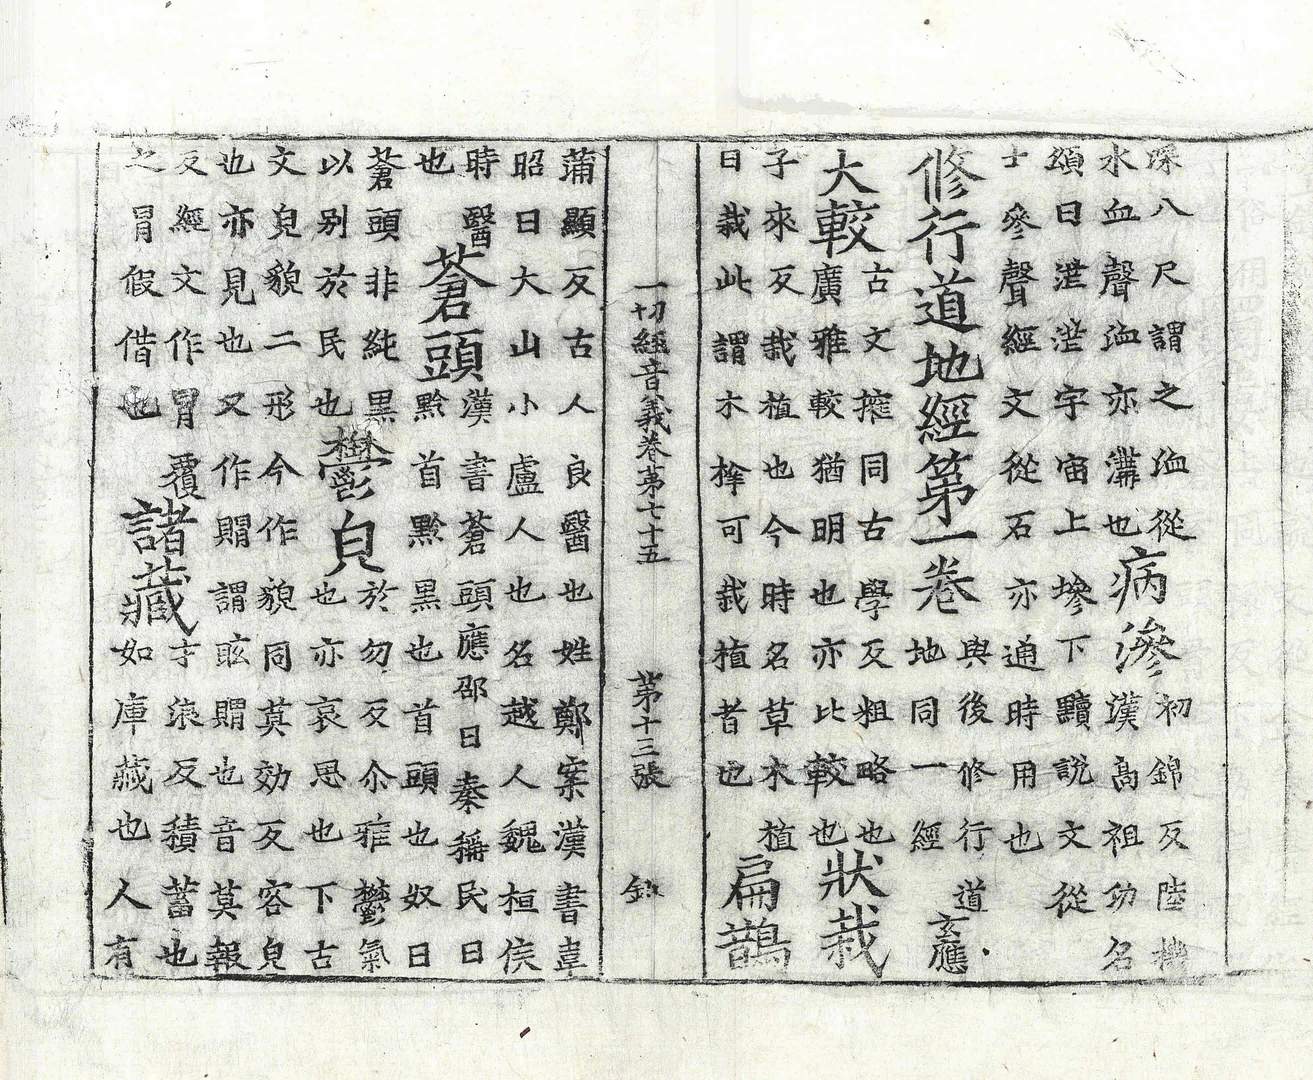 深八尺謂之洫從
水血聲洫亦溝也
病瘮
初錦反陸機
漢高祖功名
頌曰茫茫宇宙上墋下黷說文從
士參聲經文從石亦通時用也
修行道地經第一卷
與後修行道
地同一經
玄應
大較
古文搉同古學反粗略也
廣雅較猶明也亦比較也
狀栽
子來反栽植也今時名草木植
曰栽此謂木榟可栽植者也
扁鵲
一切經音義卷第七十五 第十三張
蒲顯反古人良醫也姓鄭案漢書韋
昭曰大山小盧人也名越人魏桓侯
時醫
也
蒼頭
漢書蒼頭應邵曰秦稱民曰
黔首黔黑也首頭也奴曰
蒼頭非純黑
以别於民也
鬱皃
於勿反尒雅鬱氣
也亦哀思也下古
文皃貌二形今作貌同莫効反容皃
也亦見也又作䁋謂眩䁋也音莫報
反經文作冐覆
之冐假借也
諸藏
才浪反積蓄也
如庫藏也人有